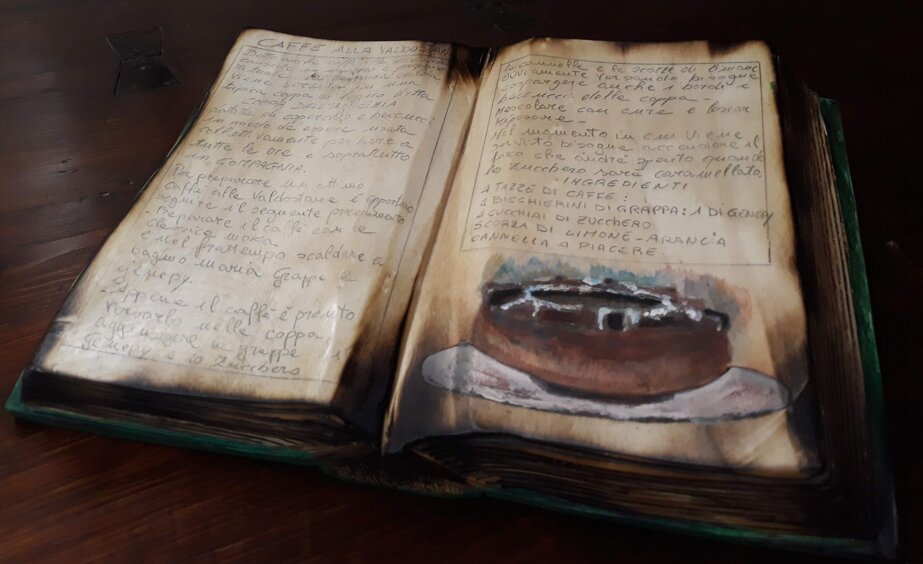 CAFFÈ ALLA VALDOSTANA
viene servita in una
tipica coppa di legno detta
COPPA DELL'AMICIZIA
dotata di coperchio e beccucci
in modo da essere usata
collettivamente per bere a
tutte le ore e soprattutto
in COMPAGNIA.
Per preparare un ottimo
caffè alla Valdostana è opportuno
seguire il seguente procedimento
- Preparare il caffè con la
classica moka
e nel frattempo scaldare a
bagno maria grappa e
génépy.
- Appena il caffè è pronto
versarlo nella coppa
aggiungere la grappa il
genepy e lo zucchero
la cannella e le scorze di limone
ovviamente versandolo bisogna
cospargere anche i bordi e
beccucci della coppa -
mescolare con cura e lasciar
riposare -
Nel momento in cui viene
servito bisogna accendere il
fuoco che andrà spento quando
lo zucchero sarà caramellato.
- INGREDIENTI
4 TAZZE DI CAFFÈ:
4 BICCHIERINI DI GRAPPA: 1 DI GENEPY
4 CUCCHIAI DI ZUCCHERO
SCORZA DI LIMONE - ARANCIA
CANNELLA A PIACERE.